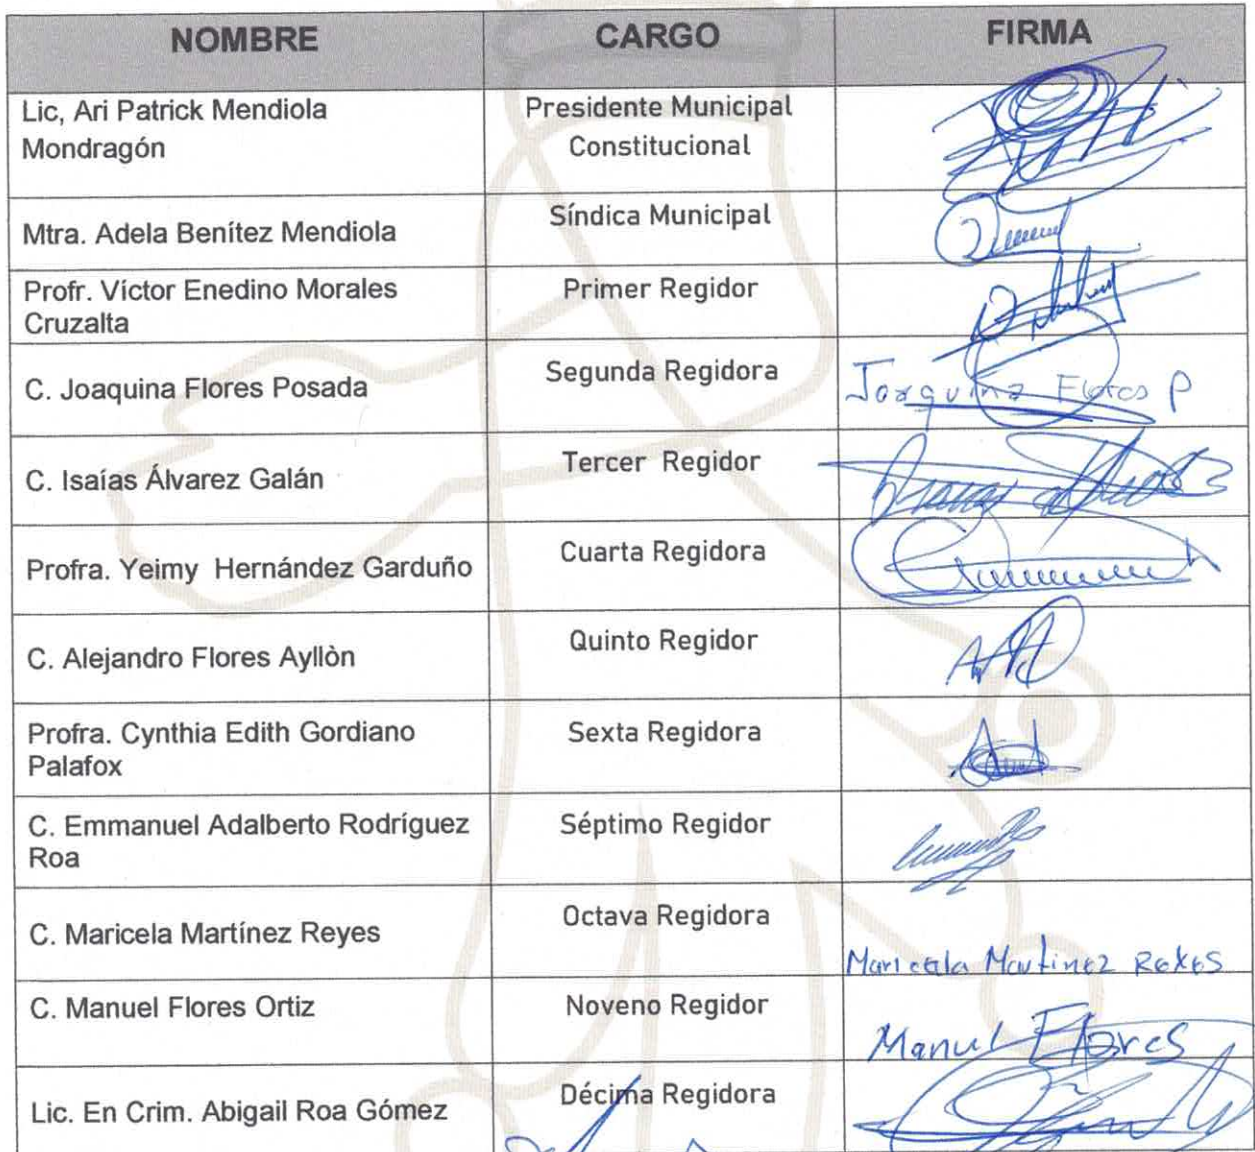 NOMBRE CARGO FIRMA
Lic, Ari Patrick Mendiola Presidente Municipal
Mondragón Constitucional
Mtra. Adela Benítez Mendiola Síndica Municipal
Profr. Víctor Enedino Morales Primer Regidor
Cruzalta
C. Joaquina Flores Posada Segunda Regidora Joaquina Flores P
C. Isaías Álvarez Galán Tercer Regidor
Profra. Yeimy Hernández Garduño Cuarta Regidora
C. Alejandro Flores Ayllòn Quinto Regidor
Profra. Cynthia Edith Gordiano Sexta Regidora
Palafox
C. Emmanuel Adalberto Rodríguez Séptimo Regidor
Roa
C. Maricela Martínez Reyes Octava Regidora
Maricela Martinez Reyes
C. Manuel Flores Ortiz Noveno Regidor
Manuel Flores
Lic. En Crim. Abigail Roa Gómez Décima Regidora